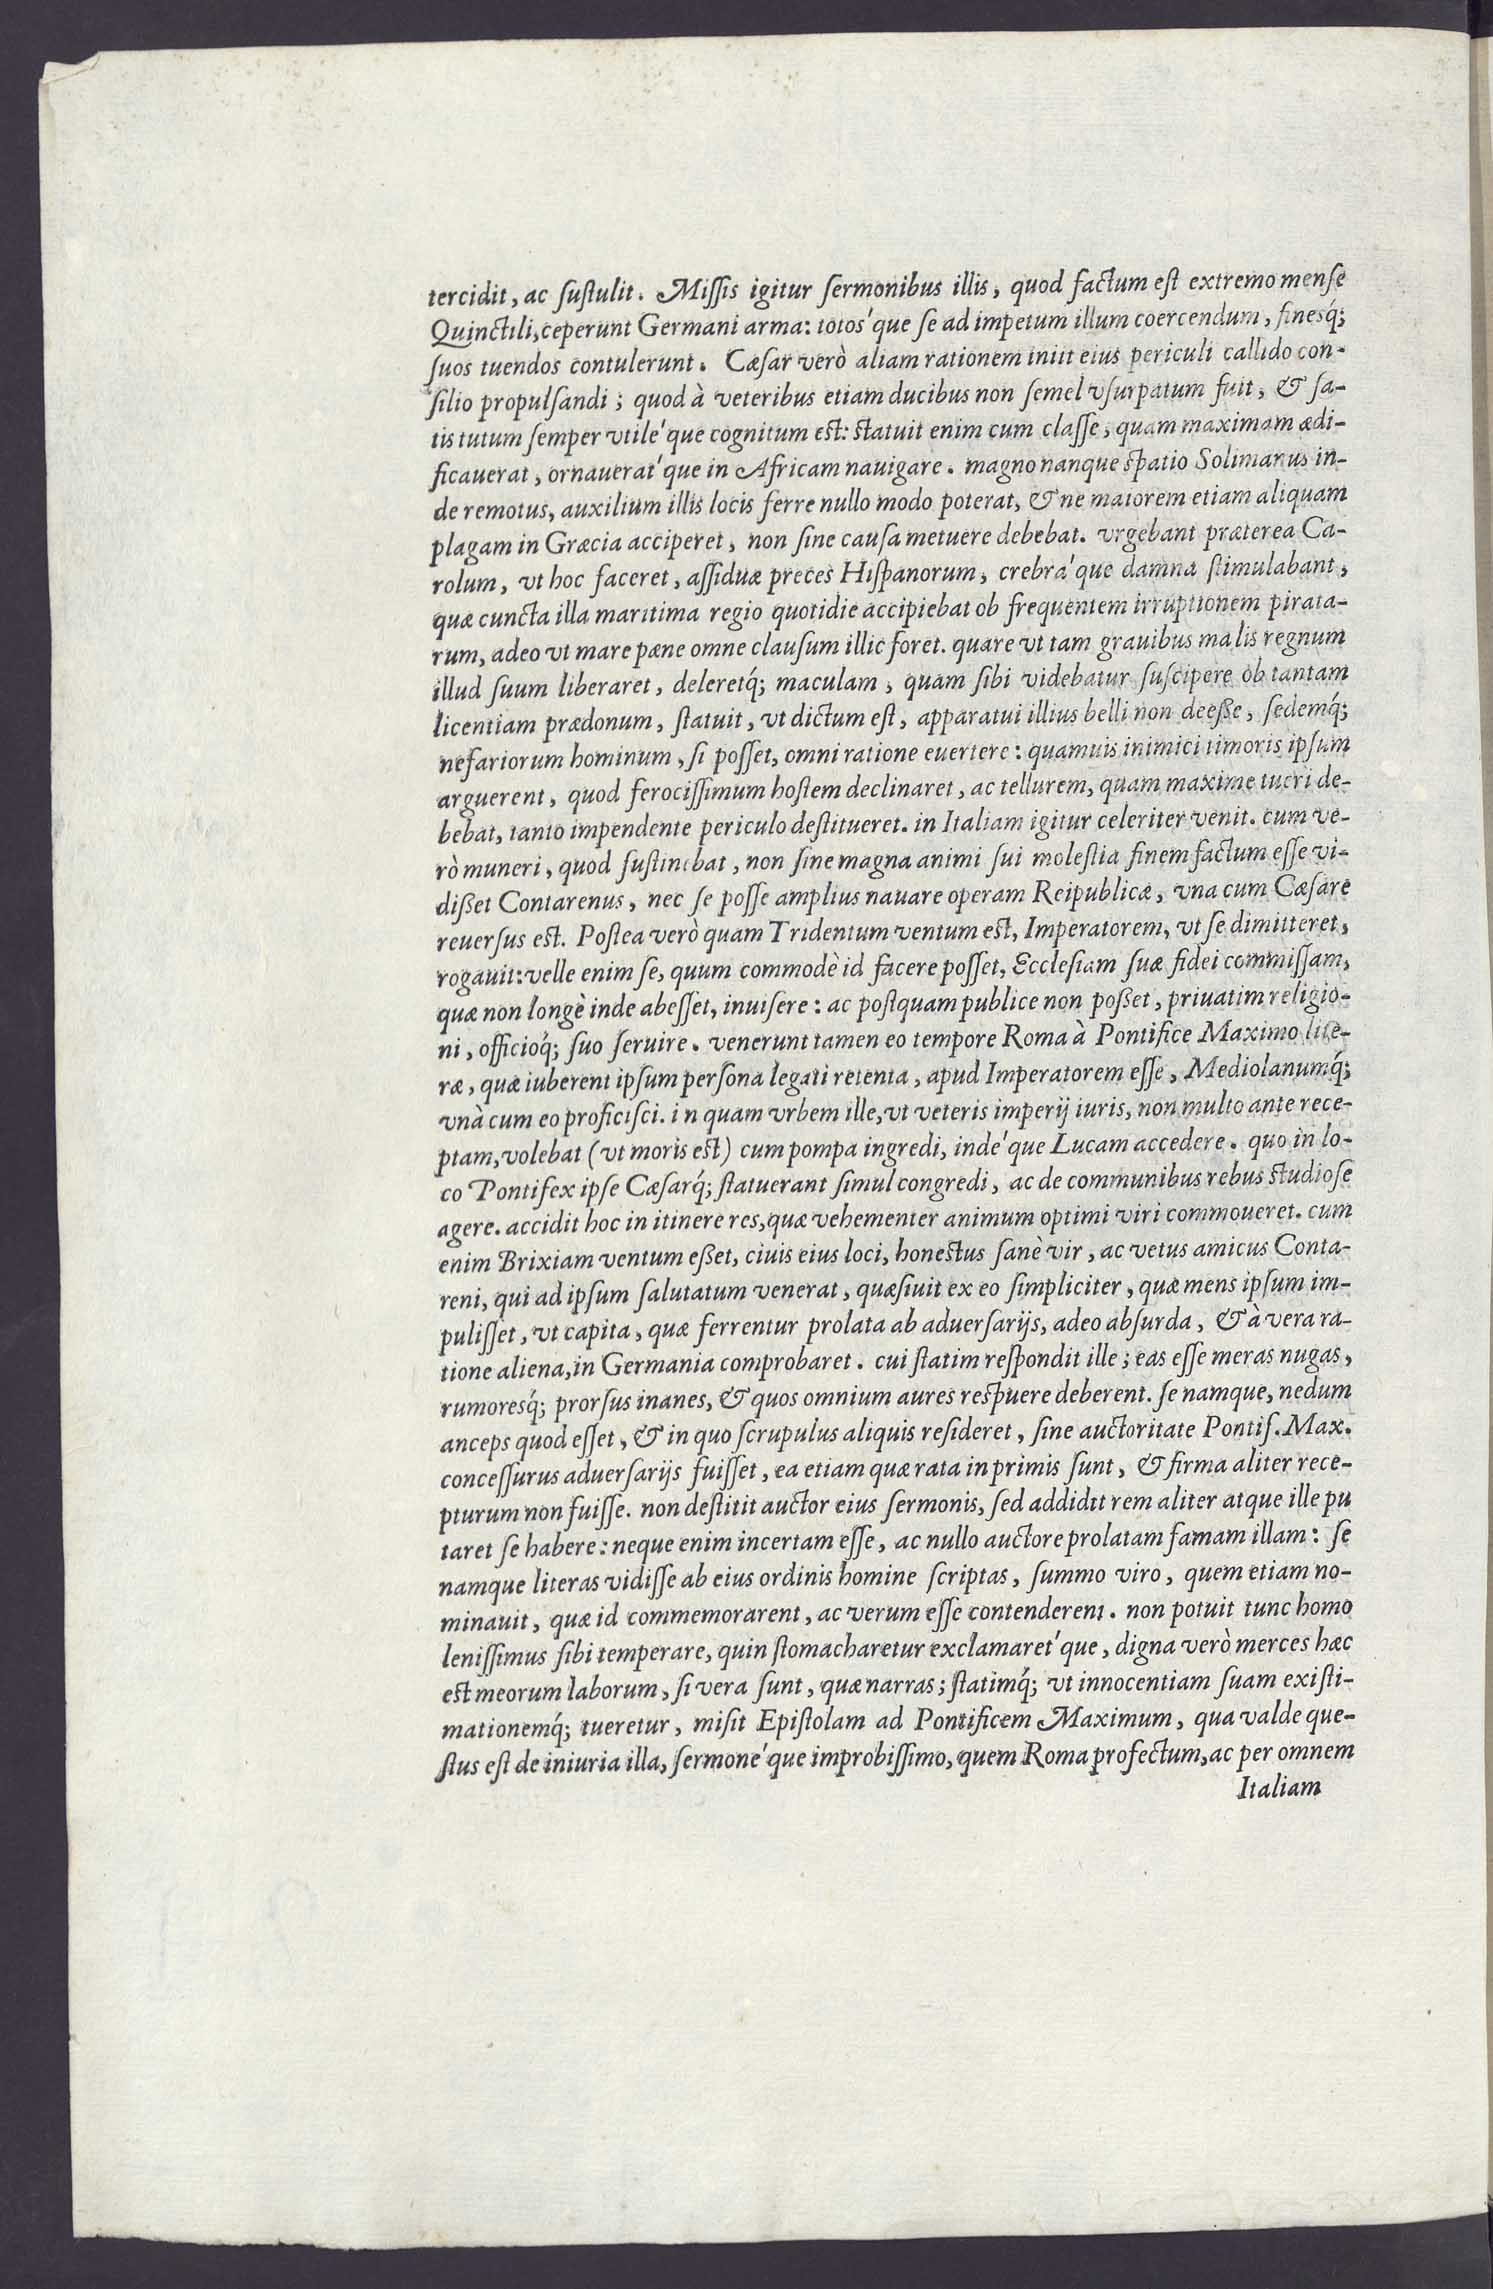 tercidit, ac ſuſtulit. Miſſis igitur ſermonibus illis, quod factum eſt extremo menſe
Quinctili, ceperunt Germani arma: totos'que ſe ad impetum illum coercendum, fineśq;
ſuos tuendos contulerunt. Cæſar verò aliam rationem iniit eius periculi callido con-
ſilio propulſandi; quod à veteribus etiam ducibus non ſemel vſurpatum fuit, & ſa-
tis tutum ſemper vtile'que cognitum est: statuit enim cum claſſe, quam maximam ædi-
ficauerat, ornauerat'que in Africam nauigare. magno nanque spatio Solimanus in-
de remotus, auxilium illis locis ferre nullo modo poterat, & ne maiorem etiam aliquam
plagam in Græcia acciperet, non ſine cauſa metuere debebat. vrgebant præterea Ca-
rolum, vt hoc faceret, aſſiduæ preces Hiſpanorum, crebra'que damna stimulabant,
quæ cuncta illa maritima regio quotidie accipiebat ob frequentem irruptionem pirata-
rum, adeo vt mare pæne omne clauſum illic foret. quare vt tam grauibus malis regnum
illud ſuum liberaret, deleretq́; maculam, quam ſibi videbatur ſuſcipere ob tantam
licentiam prædonum, ſtatuit, vt dictum eſt, apparatui illius belli non deeſſe, ſedemq́;
nefariorum hominum, ſi poſſet, omni ratione euertere: quamuis inimici timoris ipſum
arguerent, quod ferociſſimum hoſtem declinaret, ac tellurem, quam maxime tueri de-
bebat, tanto impendente periculo deſtitueret. in Italiam igitur celeriter venit. cum ve-
rò muneri, quod ſuſtinebat, non ſine magna animi ſui moleſtia finem factum eſſe vi-
dißet Contarenus, nec ſe poſſe amplius nauare operam Reipublicæ, vna cum Cæſare
reuerſus est. Poſtea verò quam Tridentum ventum est, Imperatorem, vt ſe dimitteret,
rogauit: velle enim ſe, quum commodè id facere poſſet, Eccleſiam ſuæ fidei commiſſam,
quæ non longè inde abeſſet, inuiſere: ac poſtquam publice non poßet, priuatim religio-
ni, officioq́; ſuo ſeruire. venerunt tamen eo tempore Roma à Pontifice Maximo lite-
ræ, quæ iuberent ipſum perſona legati retenta, apud Imperatorem eſſe, Mediolanumq́;
vnà cum eo proficiſci. in quam vrbem ille, vt veteris imperij iuris, non multo ante rece-
ptam, volebat (vt moris est) cum pompa ingredi, inde'que Lucam accedere. quo in lo-
co Pontifex ipſe Cæſarq́; ſtatuerant ſimul congredi, ac de communibus rebus studioſe
agere. accidit hoc in itinere res, quæ vehementer animum optimi viri commoueret. cum
enim Brixiam ventum eßet, ciuis eius loci, honestus ſanè vir, ac vetus amicus Conta-
reni, qui ad ipſum ſalutatum venerat, quæſiuit ex eo ſimpliciter, quæ mens ipſum im-
puliſſet, vt capita, quæ ferrentur prolata ab aduerſarijs, adeo abſurda, & à vera ra-
tione aliena, in Germania comprobaret. cui ſtatim reſpondit ille; eas eſſe meras nugas,
rumoresq́; prorſus inanes, & quos omnium aures respuere deberent. ſe namque, nedum
anceps quod eſſet, & in quo ſcrupulus aliquis reſideret, ſine auctoritate Pontif. Max.
conceſſurus aduerſarijs fuiſſet, ea etiam quæ rata in primis ſunt, & firma aliter rece-
pturum non fuiſſe. non deſtitit auctor eius ſermonis, ſed addidit rem aliter atque ille pu
taret ſe habere: neque enim incertam eſſe, ac nullo auctore prolatam famam illam: ſe
namque literas vidiſſe ab eius ordinis homine ſcriptas, ſummo viro, quem etiam no-
minauit, quæ id commemorarent, ac verum eſſe contenderent. non potuit tunc homo
leniſſimus ſibi temperare, quin ſtomacharetur exclamaret'que, digna verò merces hæc
est meorum laborum, ſi vera ſunt, quæ narras; ſtatimq́; vt innocentiam ſuam exiſti-
mationemq́; tueretur, miſit Epiſtolam ad Pontificem Maximum, qua valde que-
ſtus eſt de iniuria illa, ſermone'que improbiſſimo, quem Roma profectum, ac per omnem
Italiam